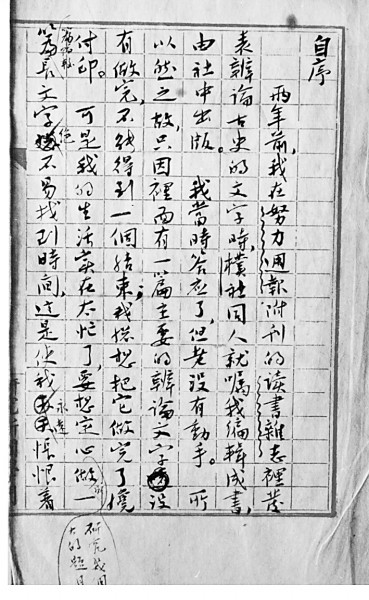 自序
兩年前，我在努力週報附刊的读書雜志裡發
表辨論古史的文字時，樸社同人就囑我编輯成書，
由社中出版。我當時答應了，但老没有動手。所
以然之故，只因裡面有一篇主要的辨論文字没
有做完，不能得到一個結束；我搃想把它做完了纔
付印。可是我的生活实在太忙了，要想定心做一
篇長文字绝不易找到時间，这是使我永遠悵恨着
研究